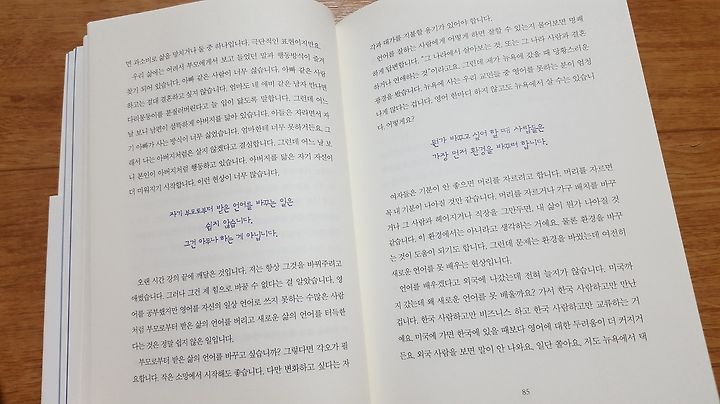 면 과소비로 삶을 망치거나 둘 중 하나입니다. 극단적인 표현이지만요.
우리 삶에는 어려서 부모에게서 보고 들었던 말과 행동방식이 즐거
찾기 되어 있습니다. 아빠 같은 사람이 너무 싫습니다. 아빠 같은 사람
하고는 절대 결혼하고 싶지 않습니다. 엄마도 네 애비 같은 남자 만나면
다리몽둥이를 분질러버린다고 늘 입이 닳도록 말합니다. 그런데 어느
날 보니 남편이 섬뜩하게 아버지를 닮아 있습니다. 아들은 자라면서 자
기 아빠가 사는 방식이 너무 싫었습니다. 엄마한테 너무 못하거든요. 그
래서 나는 아버지처럼은 살지 않겠다고 결심합니다. 그런데 어느 날 보
니 본인이 아버지처럼 행동하고 있습니다. 아버지를 닮은 자기 자신이
더 미워지기 시작합니다. 이런 현상이 너무 많습니다.
자기 부모로부터 받은 언어를 바꾸는 일은
쉽지 않습니다.
그건 아무나 하는 게 아닙니다.
오랜 시간 강의 끝에 깨달은 것입니다. 저는 항상 그것을 바꿔주려고
애썼습니다. 그러나 그건 제 힘으로 바꿀 수 없다는 걸 알았습니다. 영
어를 공부했지만 영어를 자신의 일상 언어로 쓰지 못하는 수많은 사람
처럼 부모로부터 받은 삶의 언어를 버리고 새로운 삶의 언어를 터득한
다는 것은 정말 쉽지 않은 일입니다.
부모로부터 받은 삶의 언어를 바꾸고 싶습니까? 그렇다면 각오가 필
요합니다. 작은 소망에서 시작해도 좋습니다. 다만 변화하고 싶다는 자
각과 대가를 지불할 용기가 있어야 합니다.
언어를 잘하는 사람에게 어떻게 하면 잘할 수 있는지 물어보면 명쾌
하게 답변합니다. "그 나라에서 살아보는 것, 또는 그 나라 사람과 결혼
하거나 연애하는 것"이라고요. 그런데 제가 뉴욕에 갔을 때 당황스러운
광경을 봤습니다. 뉴욕에 사는 우리 교민들 중 영어를 못하는 분이 엄청
나게 많다는 겁니다. 영어 한마디 하지 않고도 뉴욕에서 살 수는 있습니
다. 어떻게요?
뭔가 바꾸고 싶어 할 때 사람들은
가장 먼저 환경을 바꾸려 합니다.
여자들은 기분이 안 좋으면 머리를 자르려고 합니다. 머리를 자르면
꼭 내 기분이 나아질 것만 같습니다. 머리를 자르거나 가구 배치를 바꾸
거나 그 사람과 헤어지거나 직장을 그만두면, 내 삶이 뭔가 나아질 것
같습니다. 이 환경에서는 아니라고 생각하는 거예요. 물론 환경을 바꾸
는 것이 도움이 되기도 합니다. 그런데 문제는 환경을 바꿨는데 여전히
새로운 언어를 못 배우는 현상입니다.
언어를 배우겠다고 외국에 나갔는데 전혀 늘지가 않습니다. 미국까
지 갔는데 왜 새로운 언어를 못 배울까요? 가서 한국 사람하고만 만난
겁니다. 한국 사람하고만 비즈니스 하고 한국 사람하고만 교류하는 거
예요. 미국에 가면 한국에 있을 때보다 영어에 대한 두려움이 더 커지거
든요. 외국 사람을 보면 말이 안 나와요. 일단 쫄아요. 저도 뉴욕에서 택
85